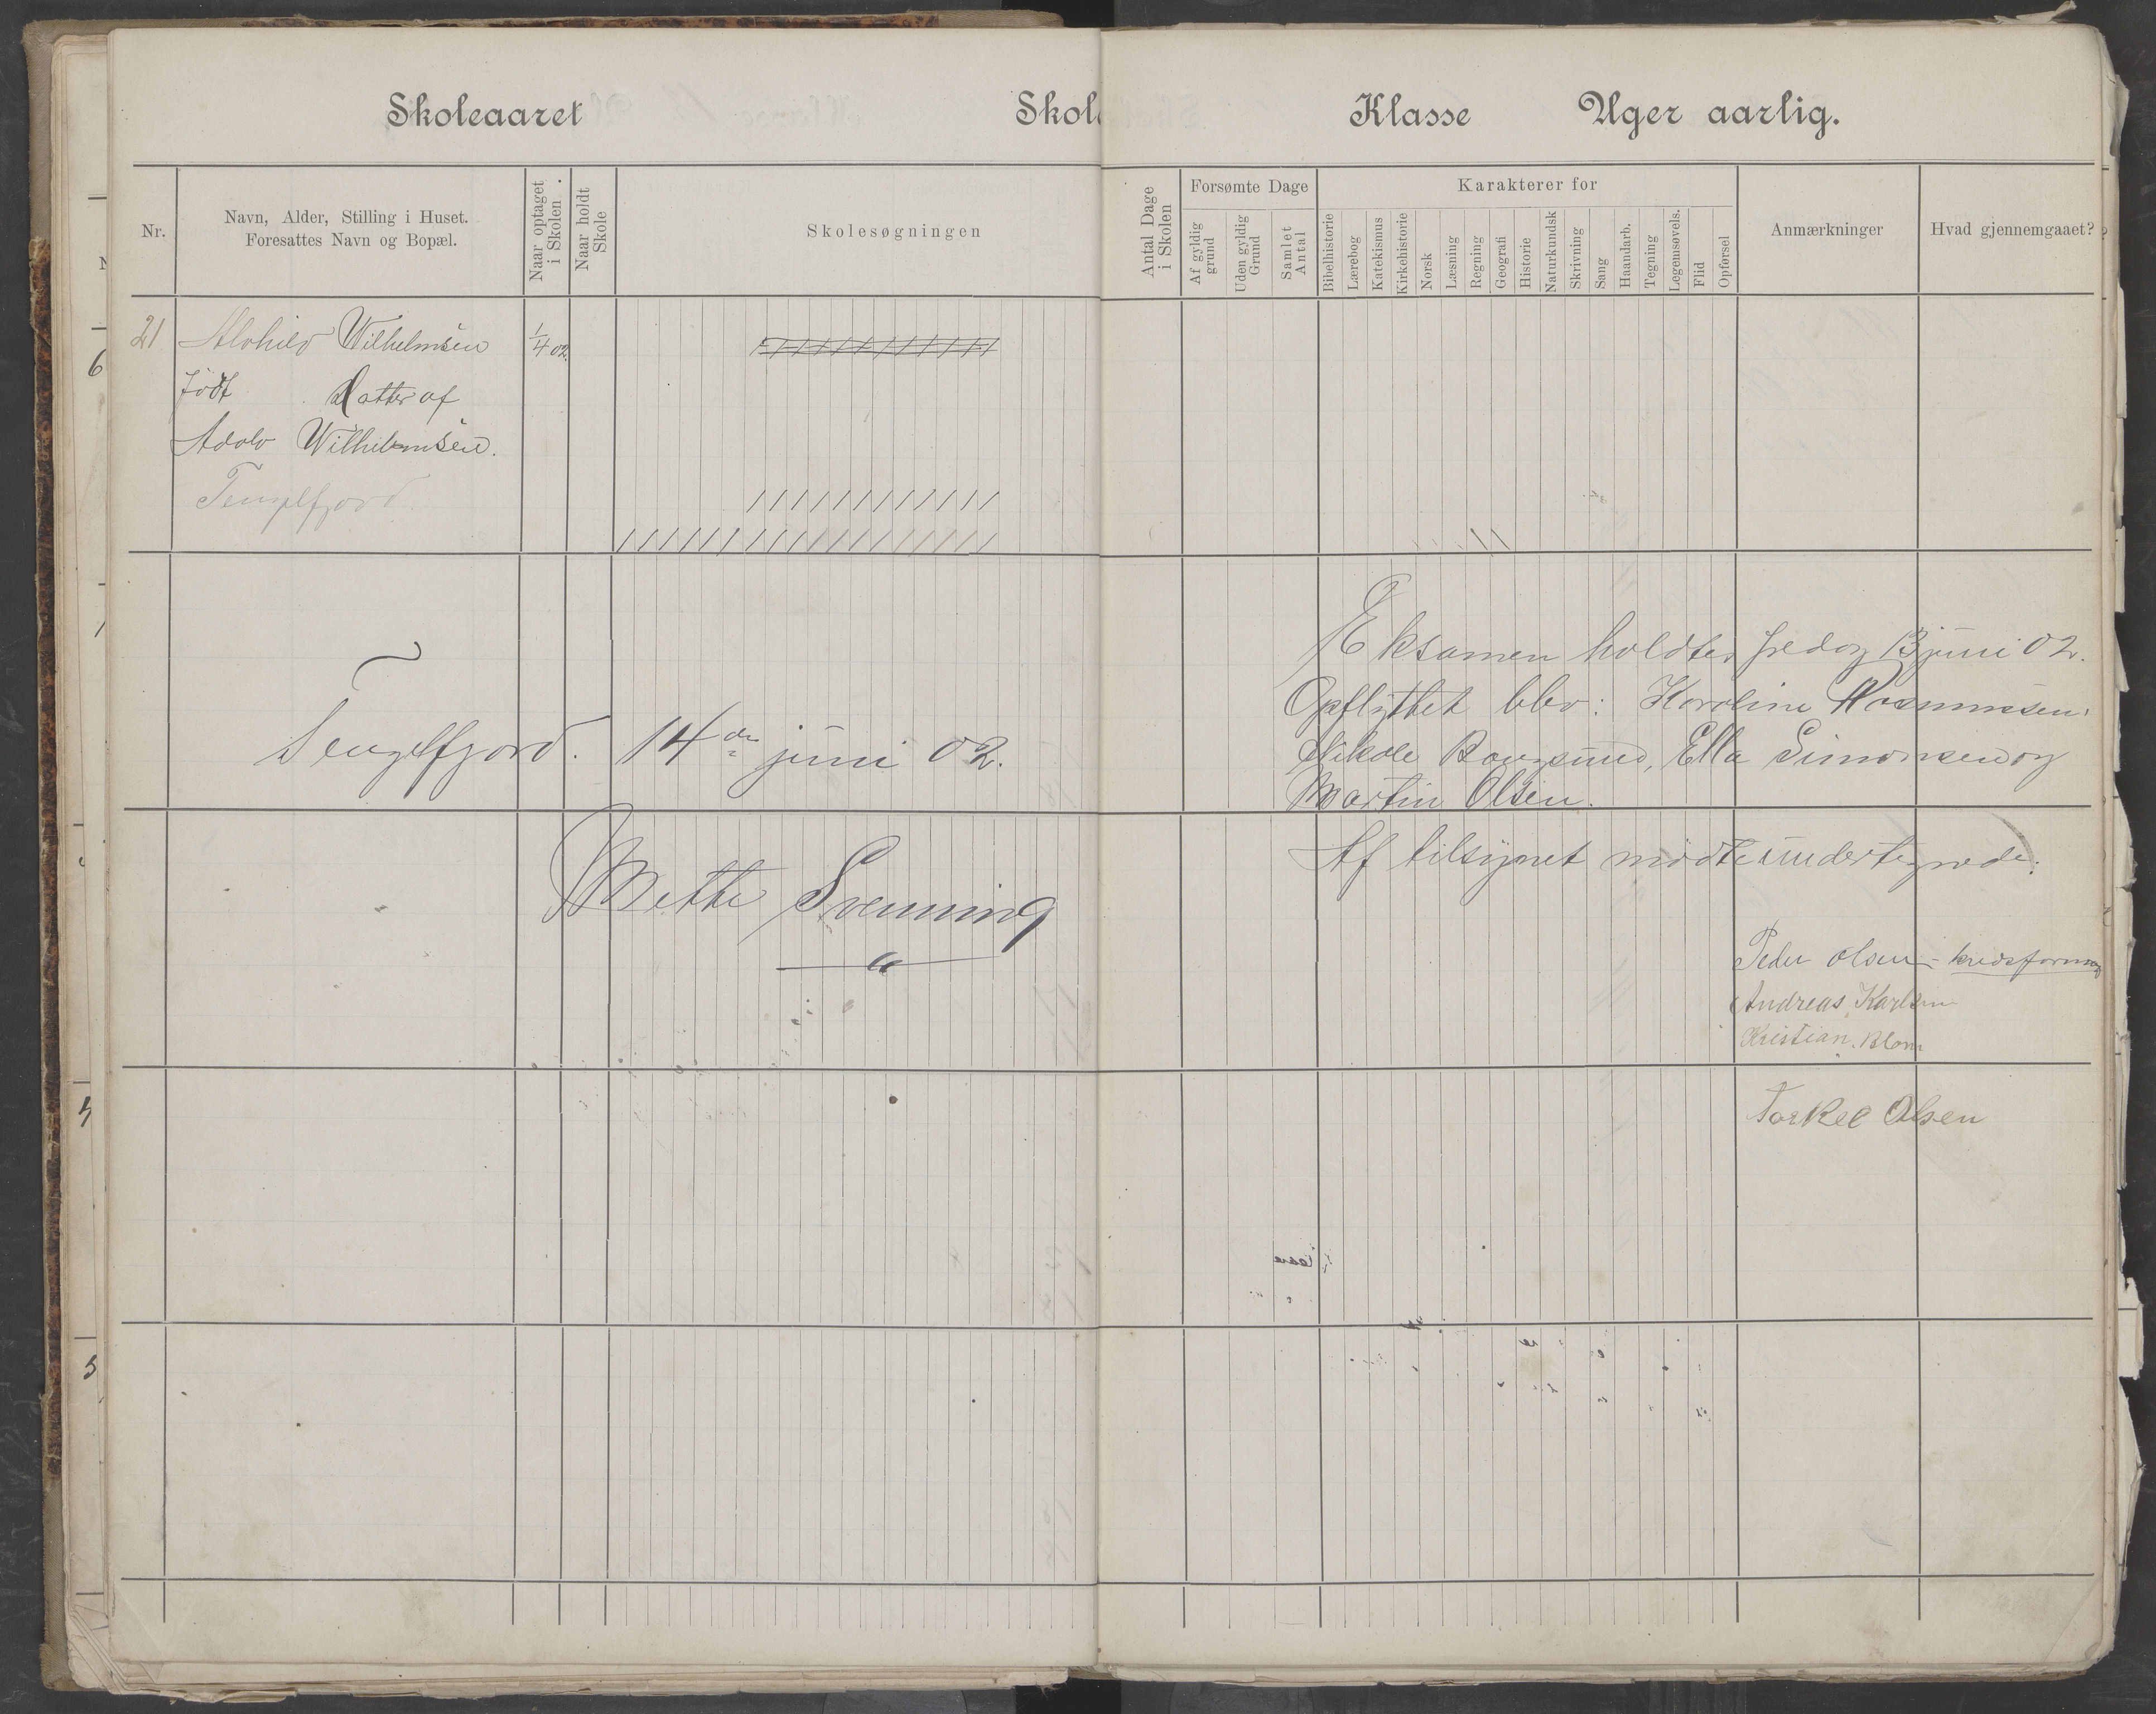 Skoleaaret Skole Klasse Uger aarlig.
Nr.
Navn, Alder, Stilling i Huset.
Foresattes Navn og Bopæl.
Naar optaget
i Skolen.
Naar holdt
Skole
Skolesøgningen
Antal Dage
i Skolen
Forsømte Dage
Af gyldig
grund
Uden gyldig
Grund
Samlet
Antal
Karakterer for
Bibelhistorie
Lærebog
Katekismus
Kirkehistorie
Norsk
Læsning
Regning
Geografi
Historie
Naturkundsk
Skrivning
Sang
Haandarb.
Tegning
Legemsøvels.
Flid
Opførsel
Anmærkninger
Hvad gjennemgaaet?
21 Alvhild Wilhelmsen 1/4 02.
Født Datter af
Adolv Wilhelmsen.
Tengelfjord
Tengelfjord. 14de juni 02.
Mette Svenning
Eksamen holdtes fredag 13 juni 02.
Opflyttet blev: Karoline Rasmussen,
Nikole Bougsund, Ella Simonsen og
Martin Olsen.
Af tilsynet mødte undertegnede:
Peder Olsen - kredsformand
Andreas Karlsen
Kristian. Blom
Torkel Olsen
6
4
5